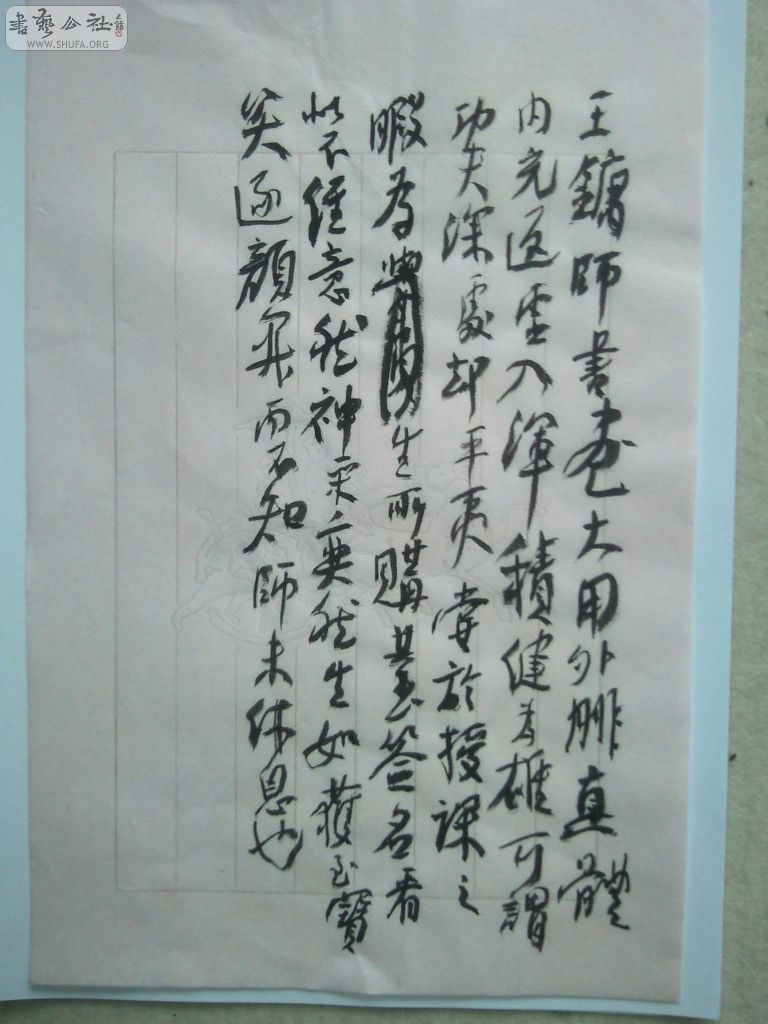 書藝公社
WWW.SHUFA.ORG
王鏞師書畫大用外腓真體
内充返虛入渾積健為雄可謂
功夫深處却平夷嘗於授課之
暇為學生所購基签名看
狀不經意然神采奕然生如獲至寶
笑逐顏開而不知師未休息也